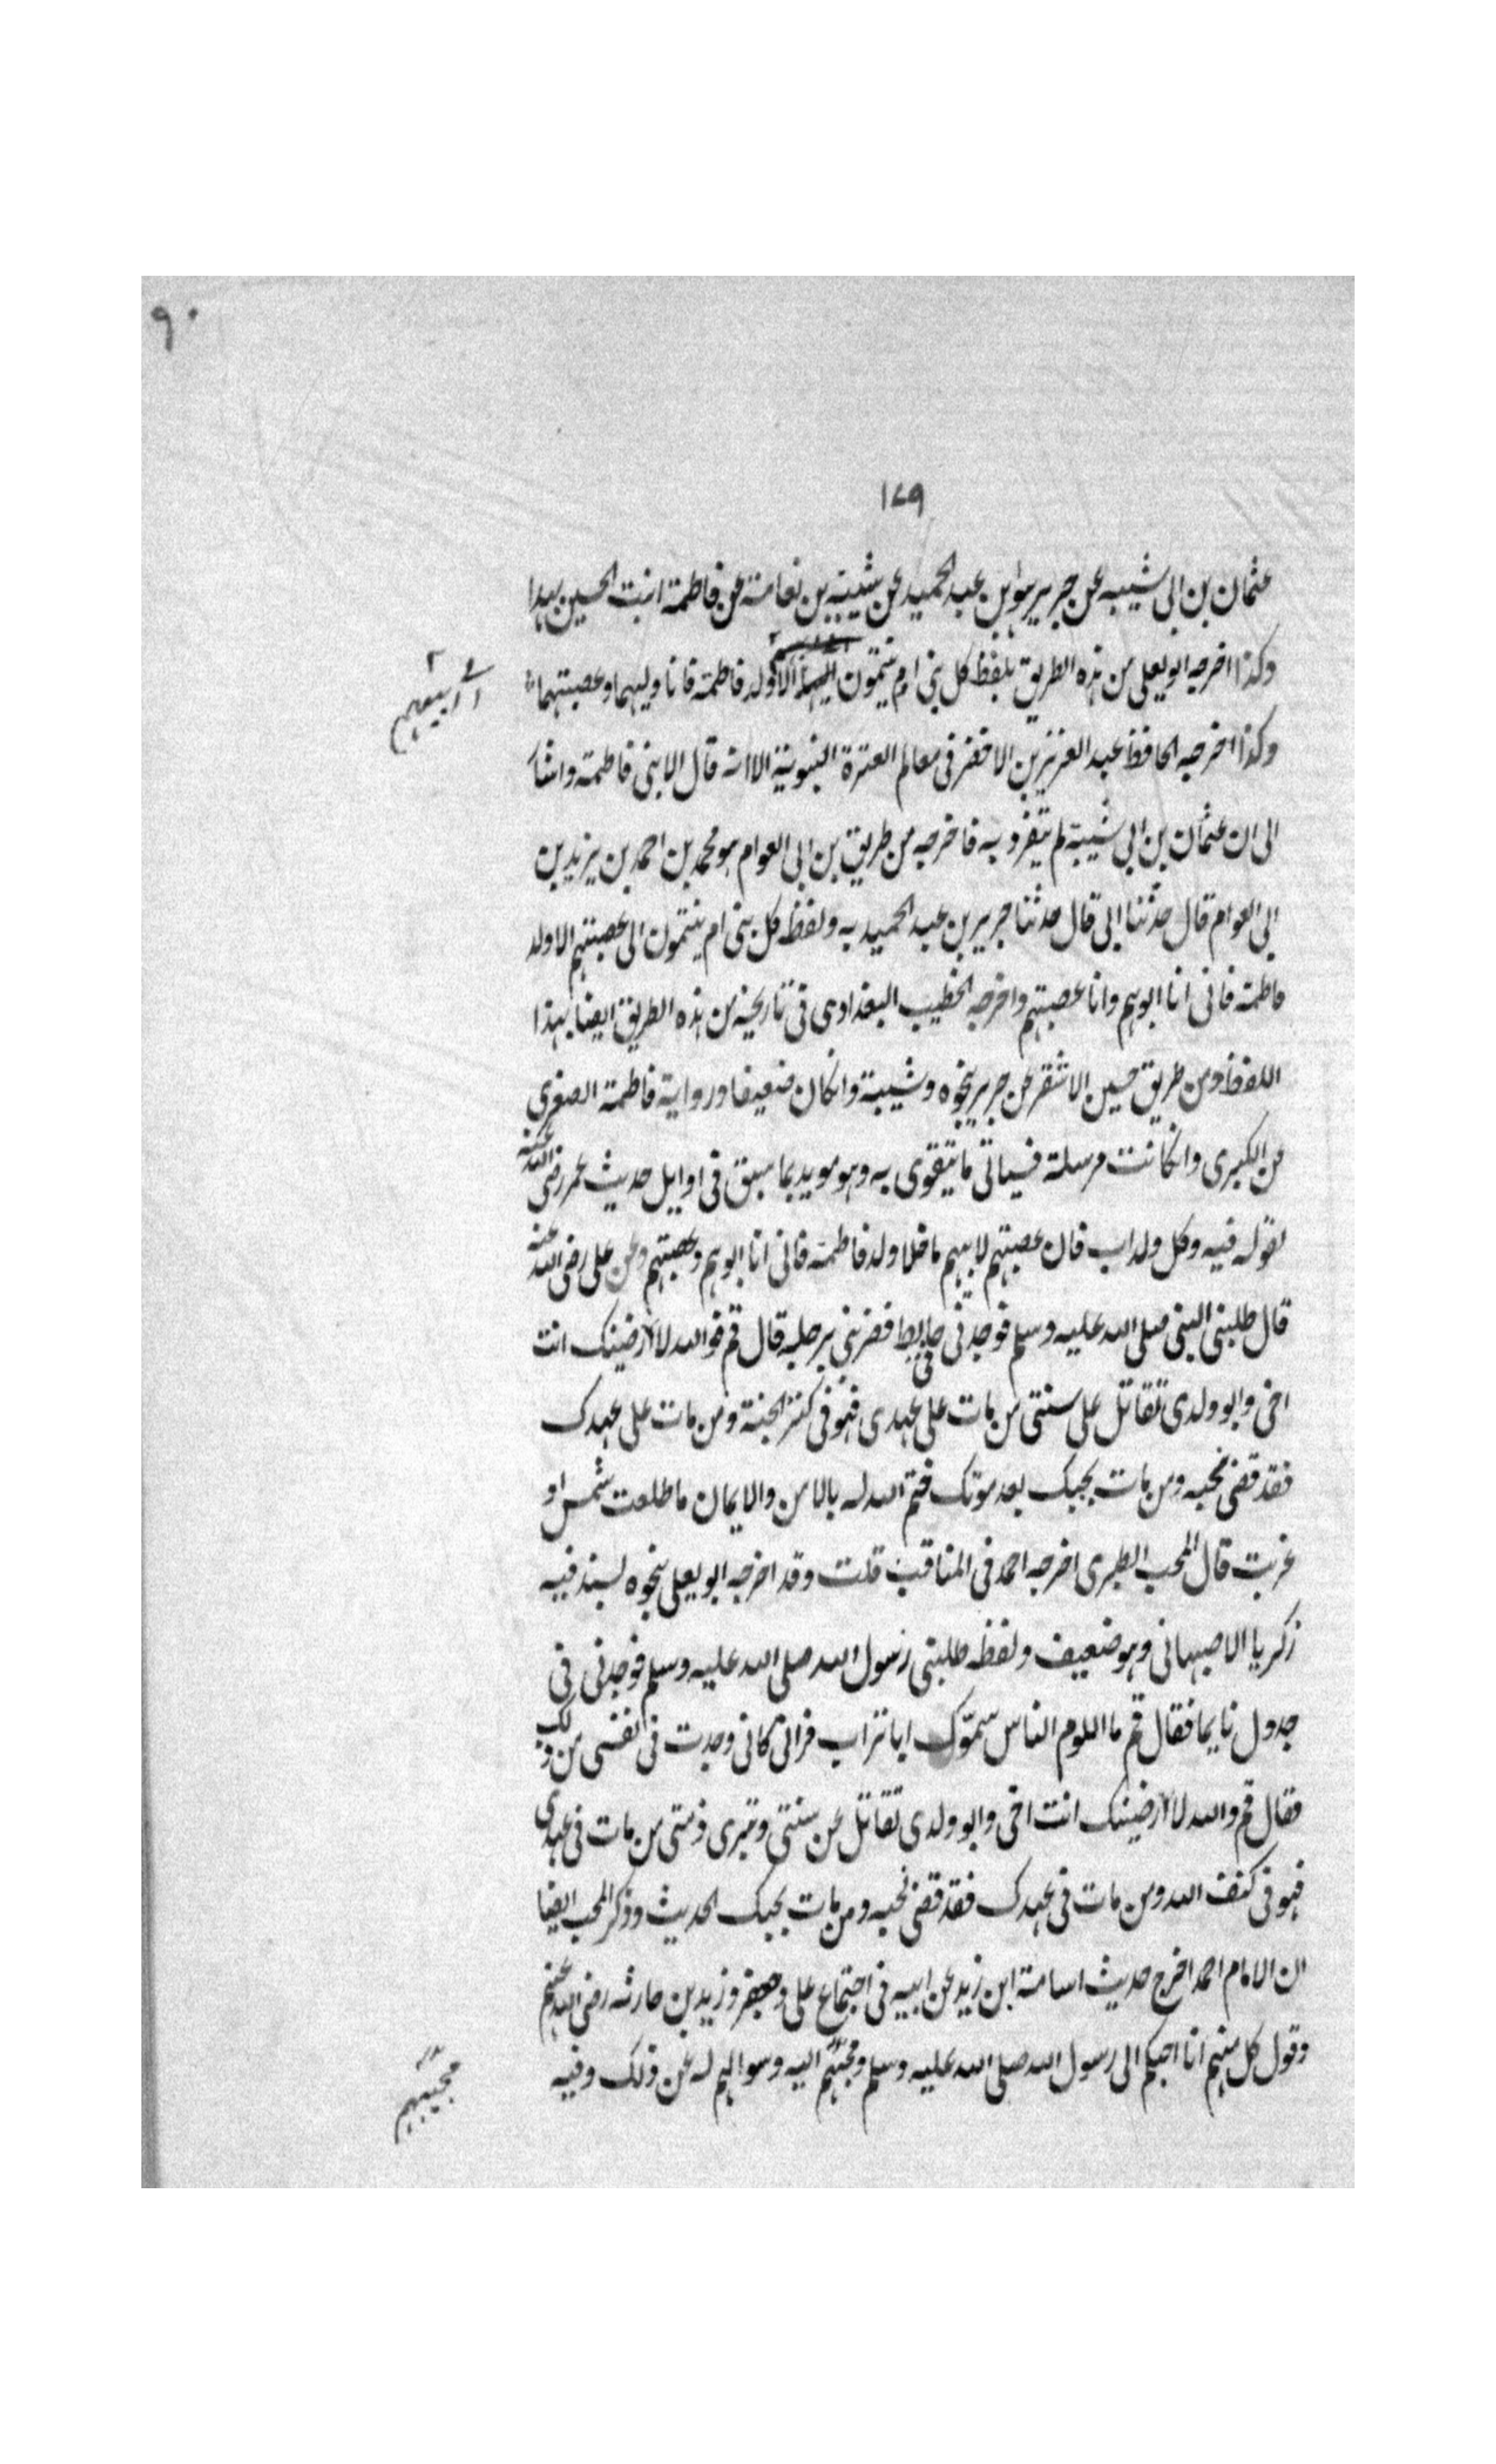 ٩٠
١٧٩
عثمان بن ابى شيبه عن جرير هو ابن عبد الحميد عن شيبة بن نعامة عن فاطمة ابنت الحسين بهذا
وكذا اخرجه ابو يعلى من هذه الطريق بلفظ كل بني ام ينتمون الا ولد فاطمة فانا وليهما وعصبتهما
وكذا اخرجه الحافظ عبد العزيز بن الاخضر فى معالم العترة النبوية الا انه قال الا بنى فاطمة واشا
الى ان عثمان بن ابى شيبة لم يتفرد به فاخرجه من طريق بن ابى العوام هو محمد بن احمد بن يزيد بن
ابى العوام قال حدثنا ابى قال حدثنا جرير بن عبد الحميد به ولفظ كل بنى ام ينتمون الى عصبتهم الا ولد
فاطمة فانى انا ابوهم وانا عصبتهم واخرجه الخطيب البغدادى فى تاريخه من هذه الطريق ايضا بهذا
اللفظ ومن طريق حسين الاشقر عن جرير بنحوه وشيبة وانكان ضعيفا ورواية فاطمة الصغرى
عن الكبرى وانكانت مرسلة فسياتى ما يتقوى به وهو مويد بما سبق فى اوايل حديث عمر رضى الله عنه
لقوله فيه وكل ولد اب فان عصبتهم لابيهم ما خلا ولد فاطمة فانى انا ابوهم وعصبتهم وعن على رضى الله عنه
قال طلبنى النبى صلى الله عليه وسلم فوجدنى فى حايط فضربنى برجله قال قم فوالله لارضينك انت
اخى وابو ولدى تقاتل على سنتى من مات على عهدى فهو فى كنز الجنة ومن مات على عهدك
فقد قضى نحبه ومن مات بحبك بعد موتك ختم الله له بالامن والايمان ما طلعت شمس او
غربت قال المحب الطبرى اخرجه احمد فى المناقب قلت وقد اخرجه ابو يعلى بنحوه بسند فيه
زكريا الاصبهانى وهو ضعيف ولفظه طلبنى رسول الله صلى الله عليه وسلم فوجدنى فى
جدول نايما فقال قم ما اللوم الناس سموّك ابا تراب فرانى كانى وجدت فى نفسى من ذلك
فقال قم والله لارضينك انت اخى وابو ولدى تقاتل عن سنتى وتبرى ذمتى من مات فى عهدى
فهو فى كنف الله ومن مات فى عهدك فقد قضى نحبه ومن مات بحبك الحديث وذكر المحب ايضا
ان الامام احمد اخرج حديث اسامة ابن زيد عن ابيه فى اجتماع على وجعفر وزيد بن حارثه رضى الله عنهم
وقول كل منهم انا احبكم الى رسول الله صلى الله عليه وسلم ومجيّهم اليه وسوالهم له عن ذلك وفيه